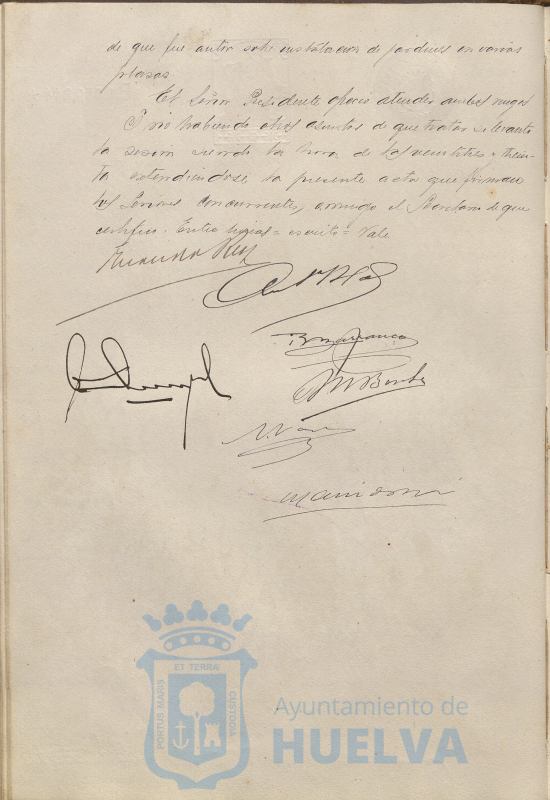 de que fue autor sobre instalacion de jardines en varias
plazas
El Señor Presidente ofrecio atender ambos ruegos
Y no habiendo otros asuntos de que tratar se levanto
la sesion siendo la hora de las veintitres y trein-
ta extendiendose la presente acta que firman
los Señores concurrentes, conmigo el Secretario de que
certifico. Entre lineas = escrito = Vale
ET TERRA
PORTUS MARIS
CUSTODIA
Ayuntamiento de
HUELVA